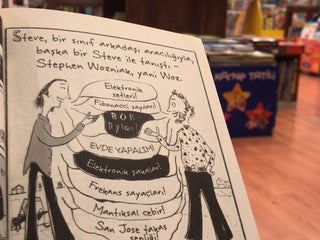 Steve, bir sınıf arkadaşı aracılığıyla,
başka bir Steve ile tanıştı -
Stephen Wozniak, yani Woz.
Elektronik
setleri!
Fibonacci sayıları!
BOB
Dylan!
EVDE YAPALIM!
Elektronik şakalar!
Frekans sayaçları!
Mantıksal cebir!
San Jose takas
şenliği!
KİTAP TATİLİ